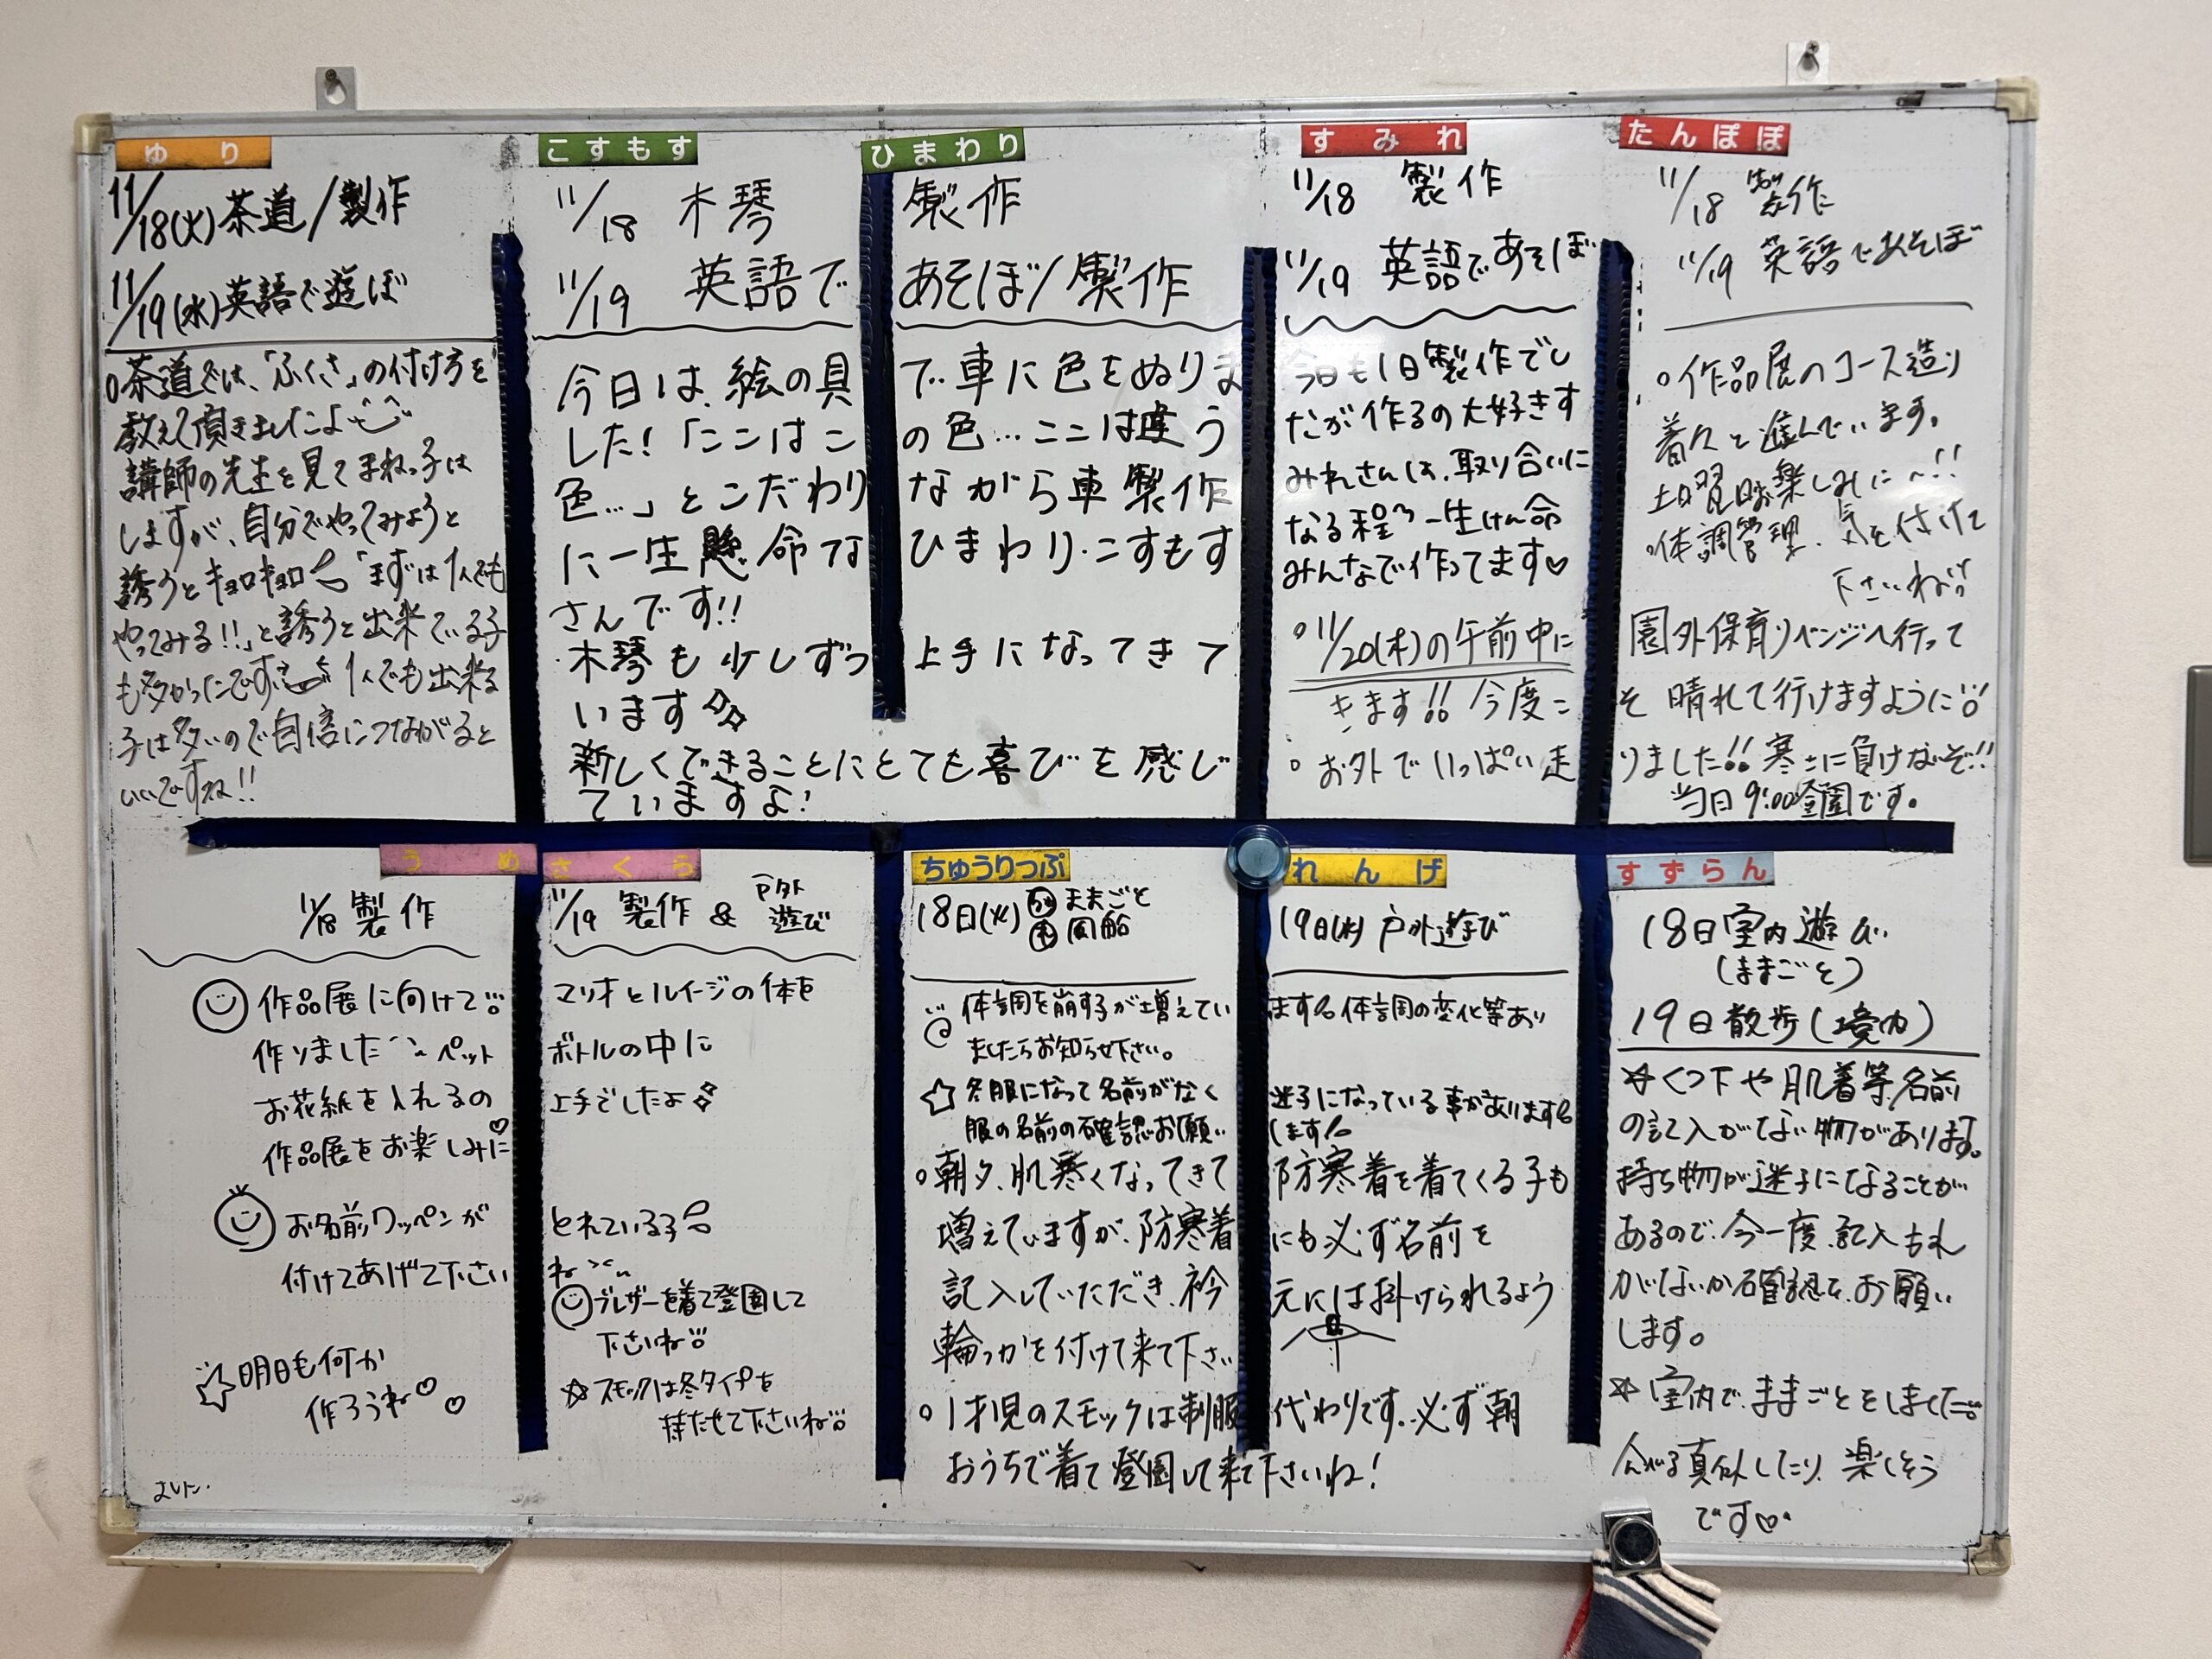 ゆり
11/18(火)茶道/製作
11/19(水)英語で遊ぼ
○茶道では、「ふくさ」の付け方を
教えて頂きましたよ
講師の先生を見てまねっ子は
しますが、自分でやってみようと
誘うとキョロキョロ「まずは1人でも
やってみる!!」と誘うと出来ている子
も多かったです 1人でも出来る
子は多いので自信につながると
いいですね!!
こすもす ひまわり
11/18 木琴 製作
11/19 英語で あそぼ/製作
今日は、絵の具 で車に色をぬりま
した!「ここはこ の色…ここは違う
色…」とこだわり ながら車製作
に一生懸命な ひまわり・こすもす
さんです!!
木琴も少しずつ 上手になってきて
います
新しくできることにとても喜びを感じ
ていますよ!
すみれ たんぽぽ
11/18 製作 11/18 製作
11/19 英語であそぼ 11/19 英語であそぼ
今日も1日製作でし ○作品展のコース造り
たが作るの大好きす 着々と進んでいます。
みれさんは、取り合いに 土曜日お楽しみに〜!!
なる程 一生けん命 ○体調管理、気を付けて
みんなで作ってます♡ 下さいね
○11/20(木)の午前中に 園外保育リベンジへ行って
きます!! 今度こ そ 晴れて行けますように
○お外でいっぱい走 りました!! 寒さに負けないぞ!!
当日9:00登園です。
うめ さくら
11/18 製作 11/19 製作 & 戸外遊び
作品展に向けて マリオとルイージの体を
作りました ペット ボトルの中に
お花紙を入れるの 上手でしたよ
作品展をお楽しみに♡
お名前ワッペンが とれている子
付けてあげて下さい ね
ブレザーを着て登園して
下さいね
☆明日も何か ☆スモックは冬タイプを
作ろうね♡♡ 持たせて下さいね
ました。
ちゅうりっぷ れんげ
18日(火) ままごと 19日(水) 戸外遊び
風船
体調を崩す子が増えてい ます。体調の変化等あり
ましたらお知らせ下さい。
☆冬服になって名前がなく 迷子になっている事があります。
服の名前の確認お願い します。
○朝夕、肌寒くなってきて 防寒着を着てくる子も
増えていますが、防寒着 にも必ず名前を
記入していただき、衿 元には掛けられるよう
輪っかを付けて来て下さい
○1才児のスモックは制服 代わりです。必ず朝
おうちで着て登園して来て下さいね!
すずらん
18日室内遊び
(ままごと)
19日散歩(境内)
☆くつ下や肌着等、名前
の記入がない物があります。
持ち物が迷子になることが
あるので、今一度、記入もれ
がないか確認を、お願い
します。
☆室内で、ままごとをしました
真似したり、楽しそう
です♡